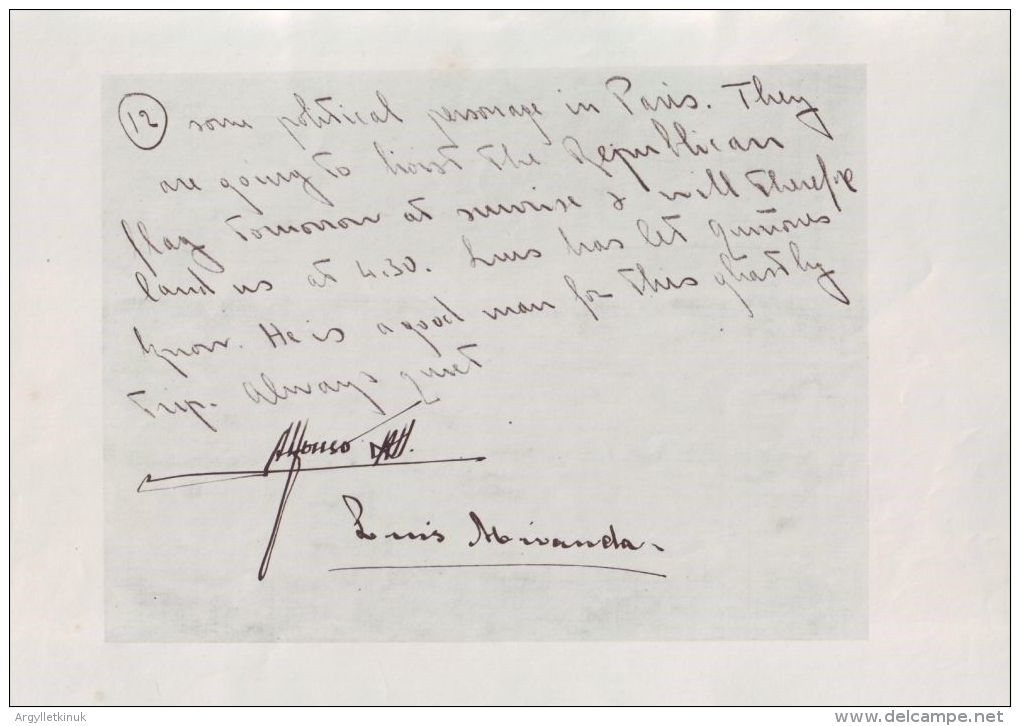 12 some political personage in Paris. They
are going to hoist the Republican
flag tomorrow at sunrise & will therefore
land us at 4.30. Luis has let Quiñones
know. He is a good man for this ghastly
trip. Always quiet
Alfonso XIII.
Luis Miranda.
Argylletkinuk
www.delcampe.net